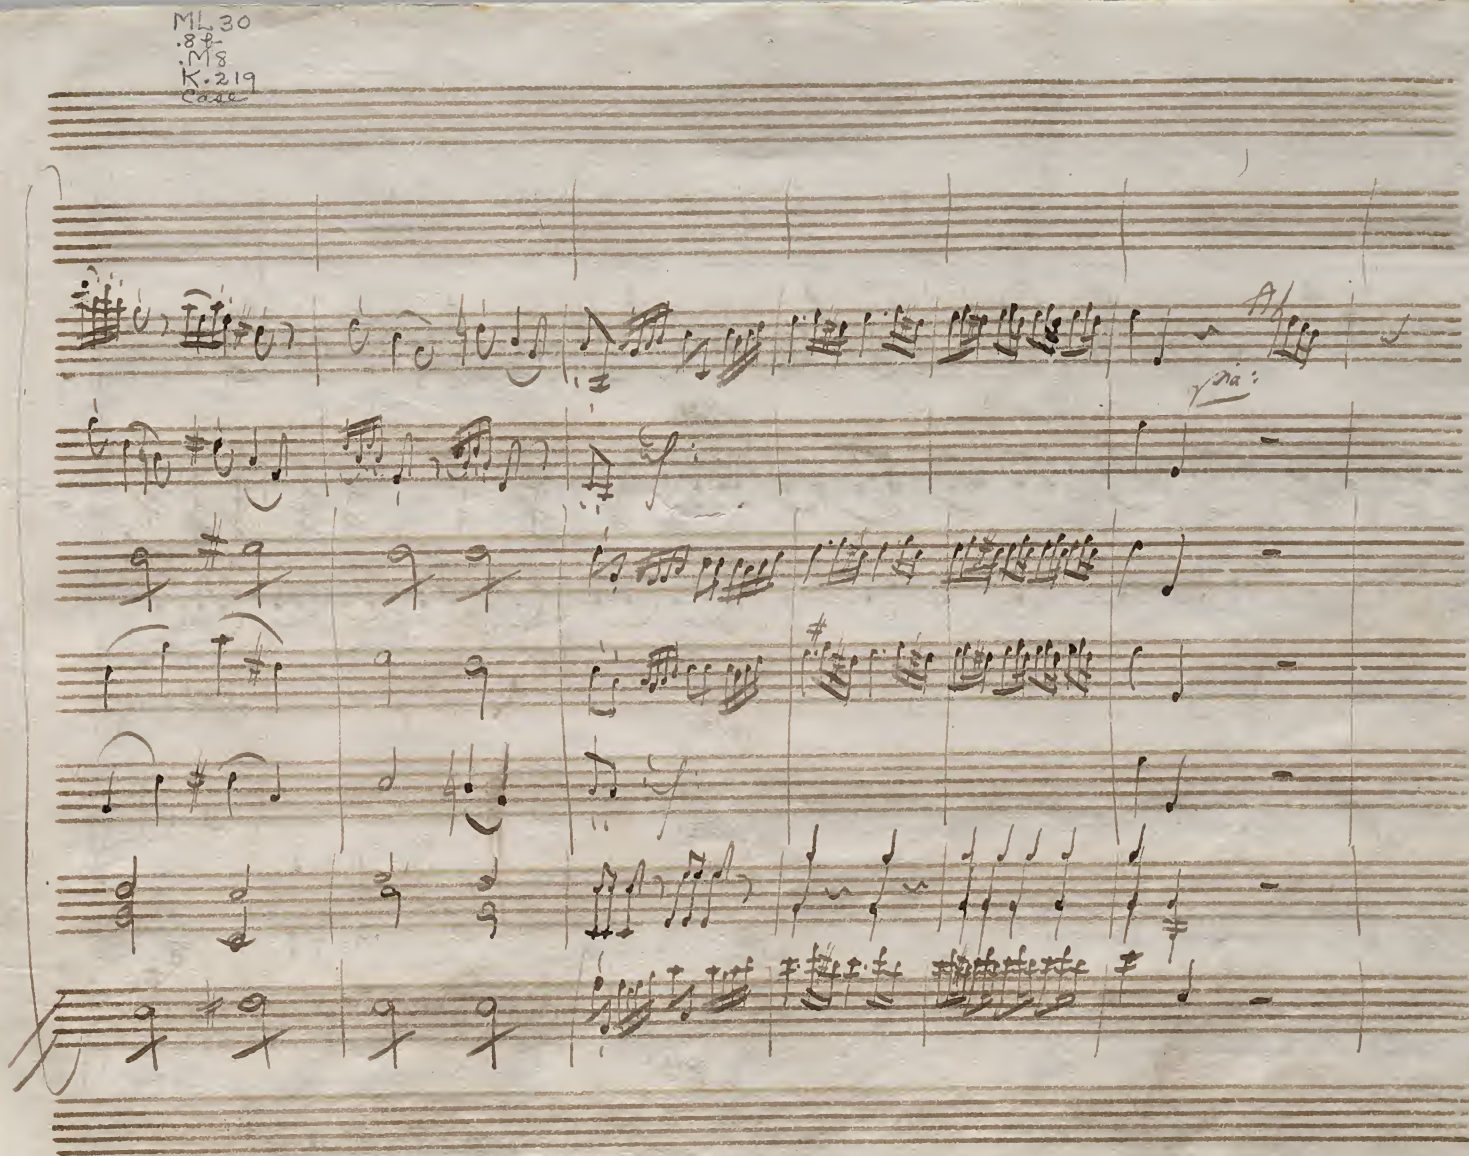 ML30
.8b
.M8
K.219
Case
pia: